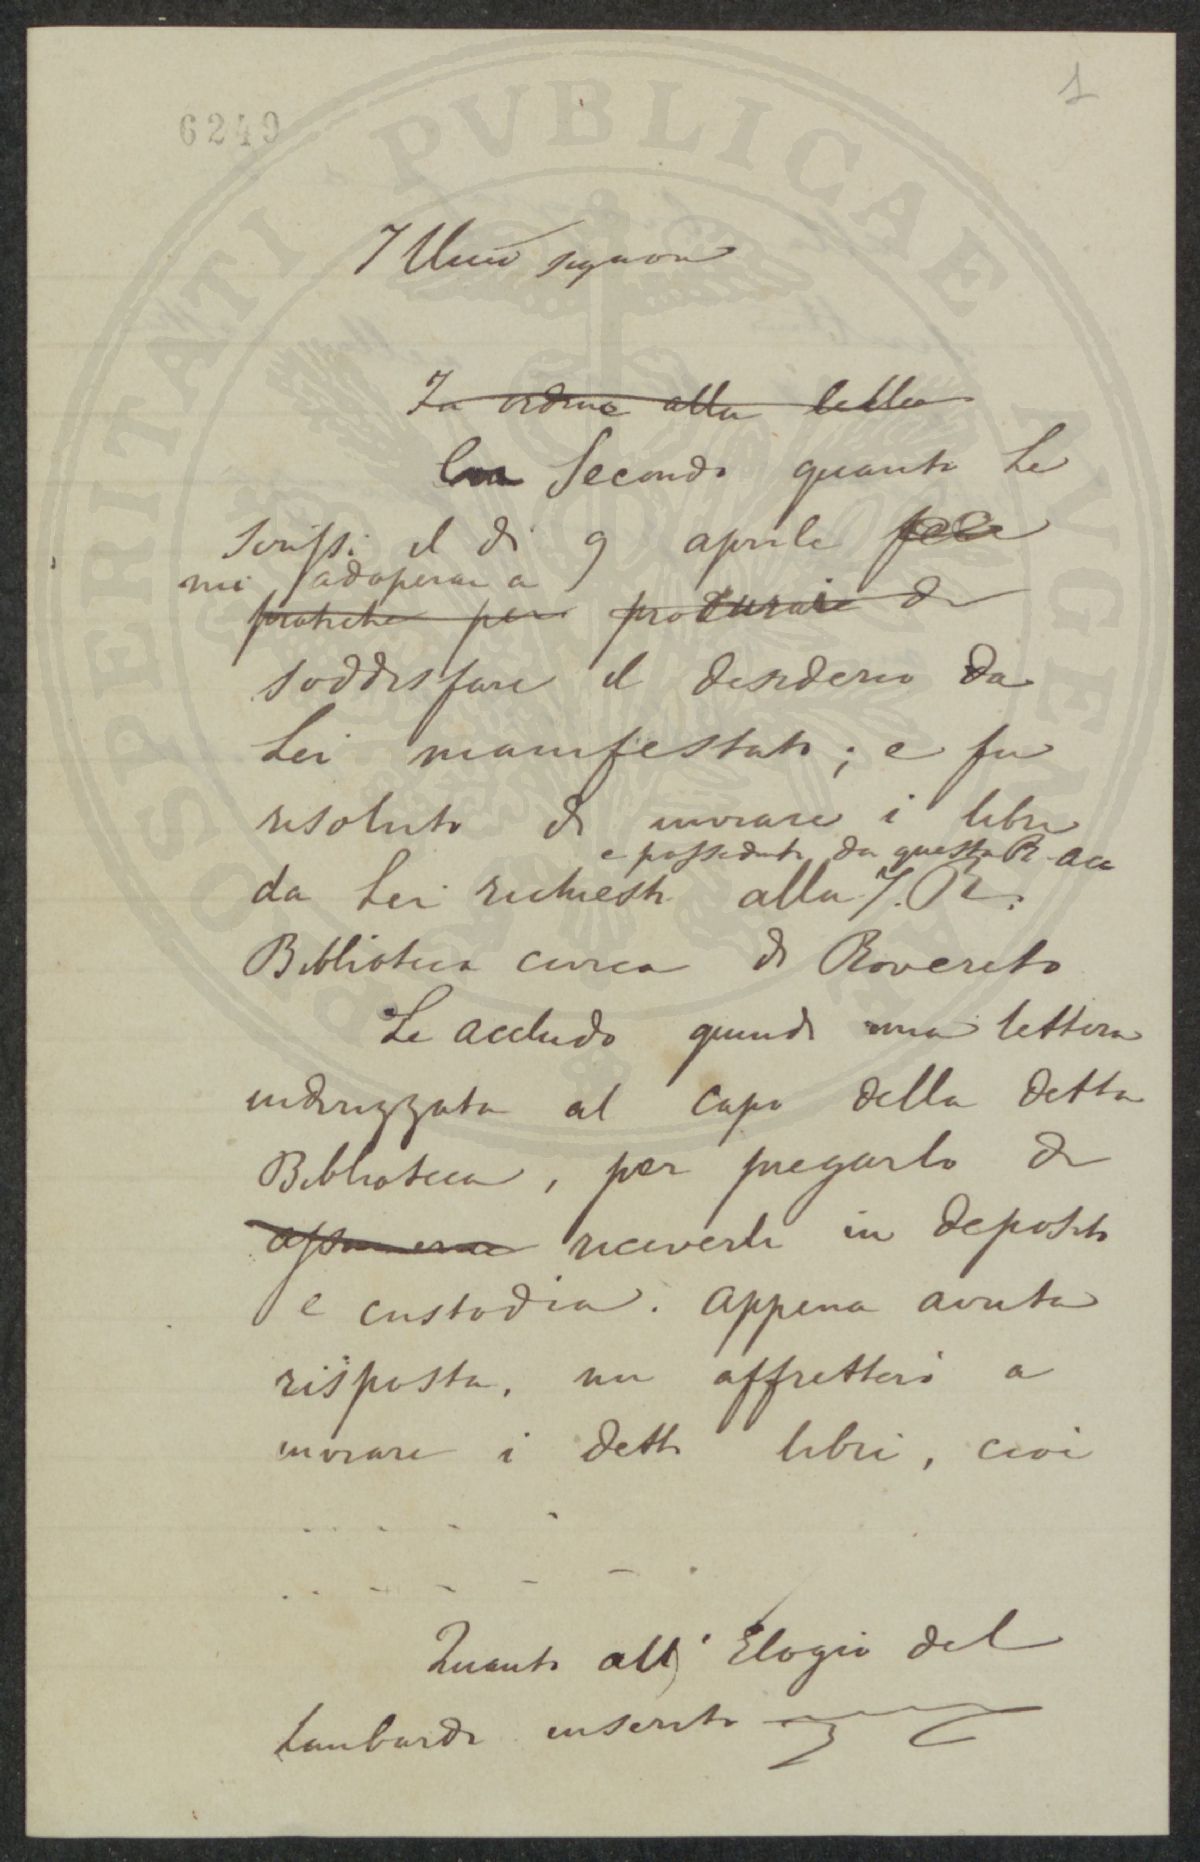 1
6249
PROSPERITATI PVBLICAE AVGENDAE
Illmo signore
In ordine alla lettera
Secondo quanto Le
scrissi il dì 9 aprile feci
mi adoperai a
pratiche per procurare di
soddisfare il desiderio da
Lei manifestato; e fu
risoluto di inviare i libri
e posseduti da questa R. Acc
da Lei richiesti alla I. R.
Biblioteca civica di Rovereto
Le accludo quindi una lettera
indirizzata al capo della detta
Biblioteca, per pregarlo di
assumerne riceverli in deposito
e custodia. Appena avuta
risposta, mi affretterò a
inviare i detti libri, cioè
. . . . .
. . - - - .
Quanto all'Elogio del
Lombardi inserito